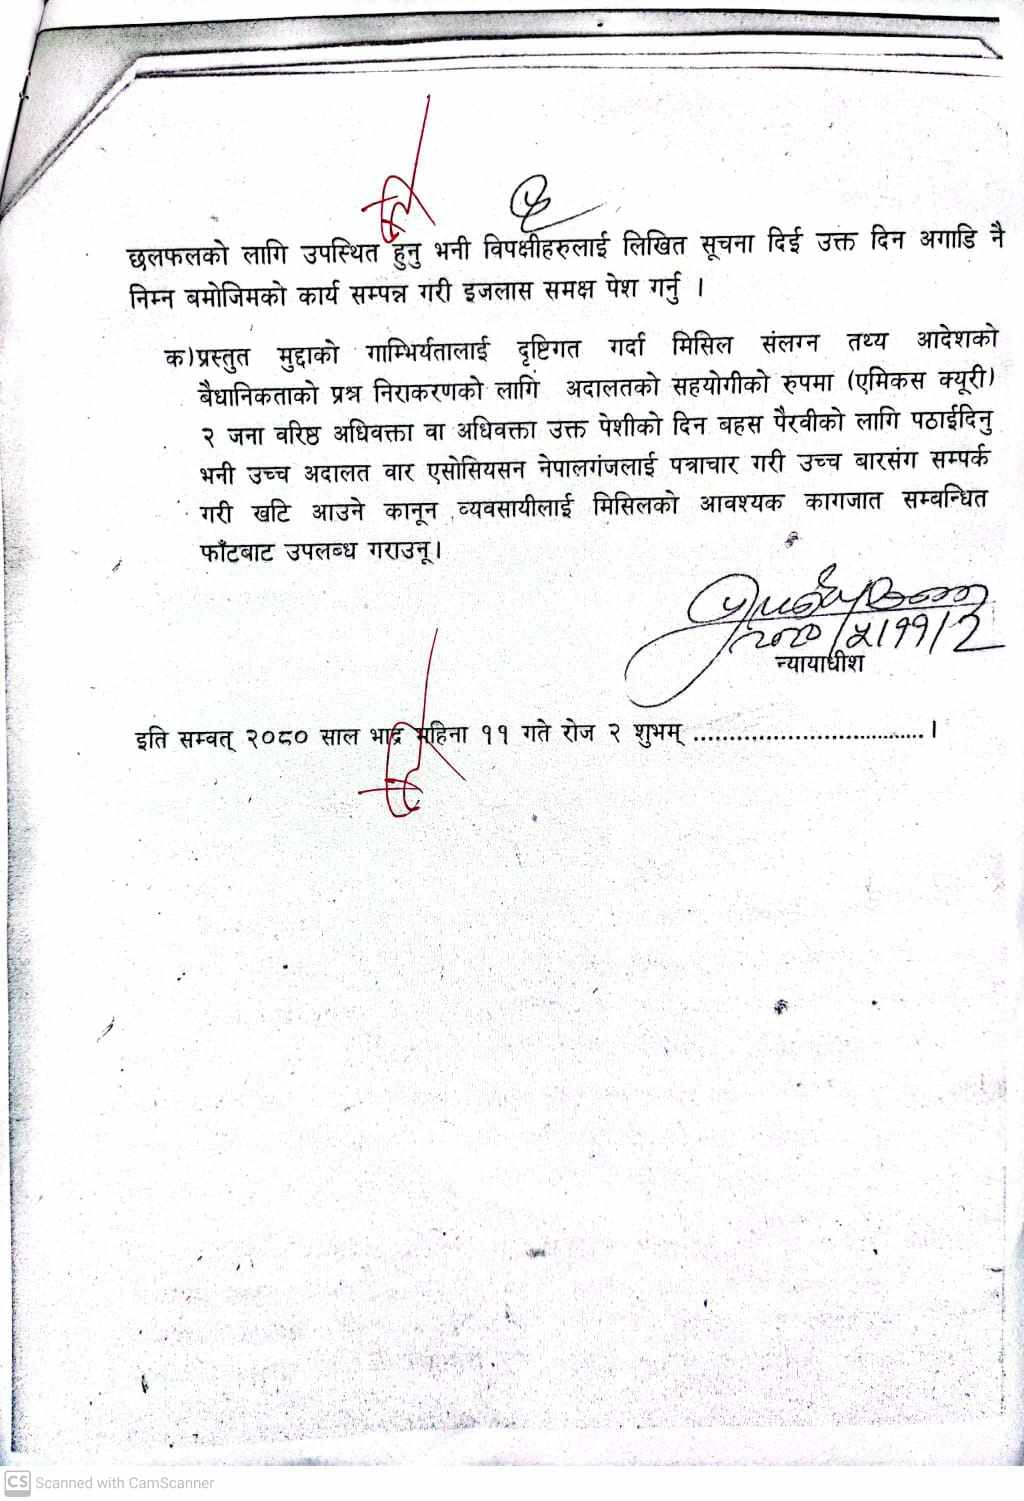 छलफलको लागि उपस्थित हुनु भनी विपक्षीहरुलाई लिखित सूचना दिई उक्त दिन अगाडि नै
निम्न बमोजिमको कार्य सम्पन्न गरी इजलास समक्ष पेश गर्नु ।
क)प्रस्तुत मुद्दाको गाम्भिर्यतालाई दृष्टिगत गर्दा मिसिल संलग्न तथ्य आदेशको
बैधानिकताको प्रश्न निराकरणको लागि अदालतको सहयोगीको रुपमा (एमिकस क्यूरी)
२ जना वरिष्ठ अधिवक्ता वा अधिवक्ता उक्त पेशीको दिन बहस पैरवीको लागि पठाईदिनु
भनी उच्च अदालत वार एसोसियसन नेपालगंजलाई पत्राचार गरी उच्च बारसंग सम्पर्क
गरी खटि आउने कानून व्यवसायीलाई मिसिलको आवश्यक कागजात सम्बन्धित
फाँटबाट उपलब्ध गराउनू।
२०८०/५/११/२
न्यायाधीश
इति सम्वत् २०८० साल भाद्र महिना ११ गते रोज २ शुभम् ................................ ।
CS Scanned with CamScanner